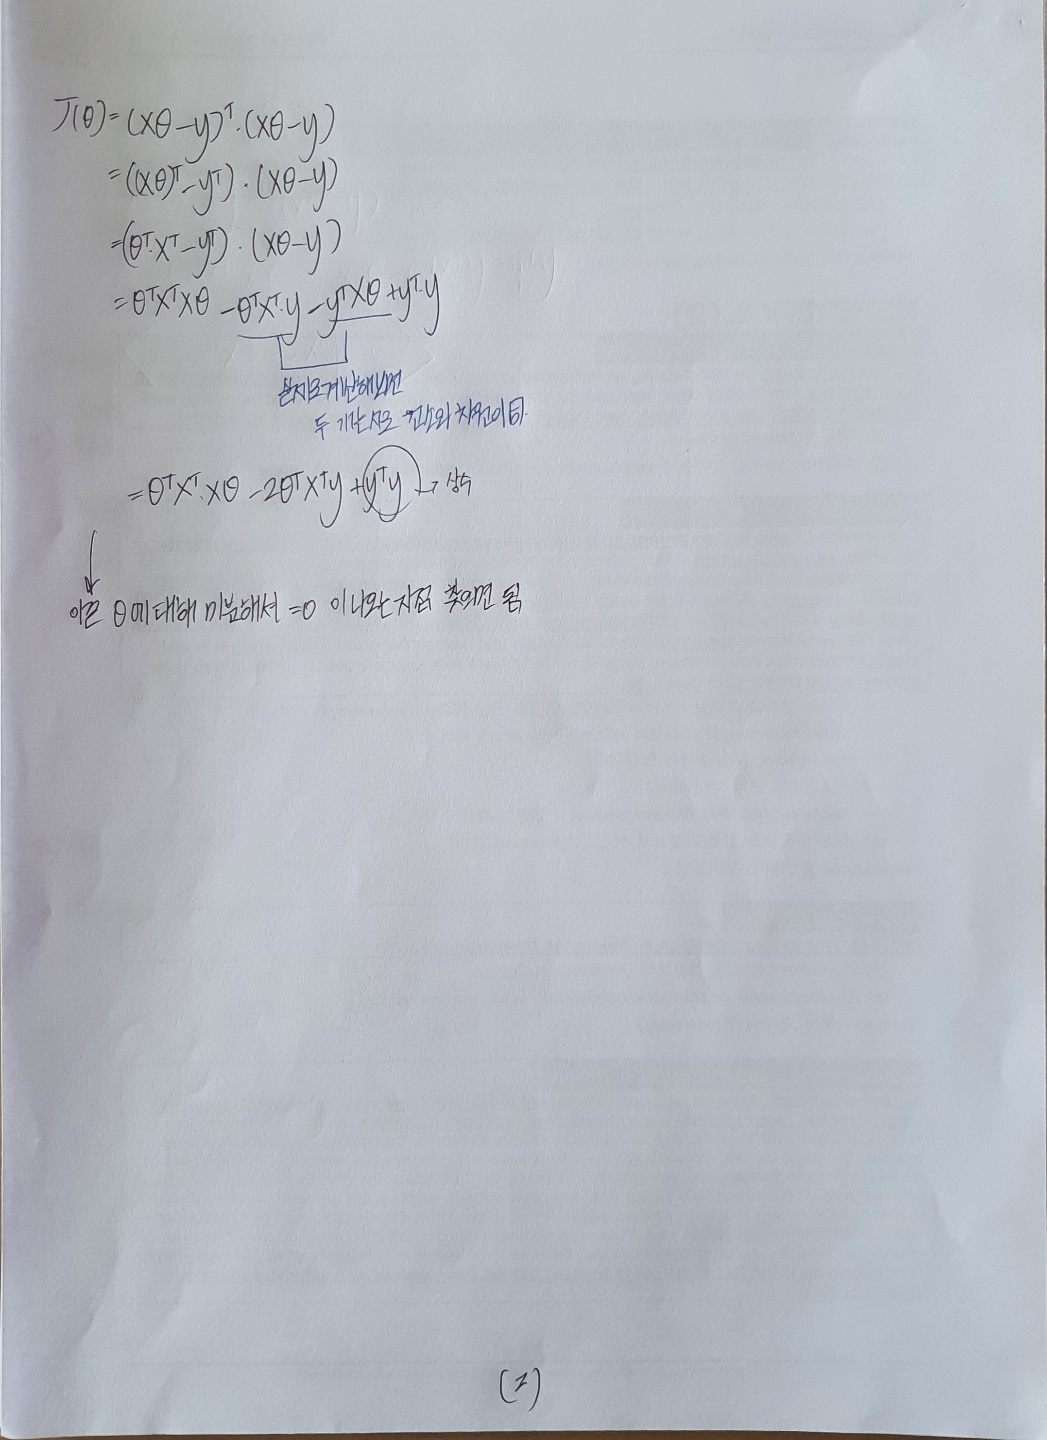 J(θ)=(Xθ-y)ᵀ·(Xθ-y)
=((Xθ)ᵀ-yᵀ)·(Xθ-y)
=(θᵀ·Xᵀ-yᵀ)·(Xθ-y)
=θᵀXᵀXθ-θᵀXᵀ·y-yᵀXθ+yᵀ·y
실제로 계산해보면
두 서로 차원이
=θᵀXᵀ·Xθ-2θᵀXᵀy+yᵀy → 상수
이를 θ에 대해 미분해서 =0 이 나오는 지점 찾으면 됨